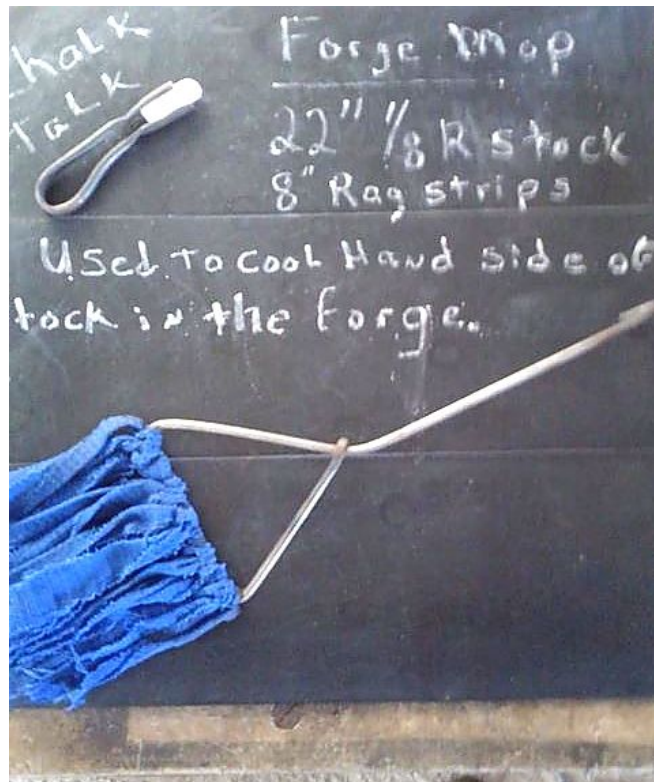 halk
Talk
Forge Mop
22" 1/8 R stock
8" Rag strips
Used To Cool Hand side of
tock in the forge.